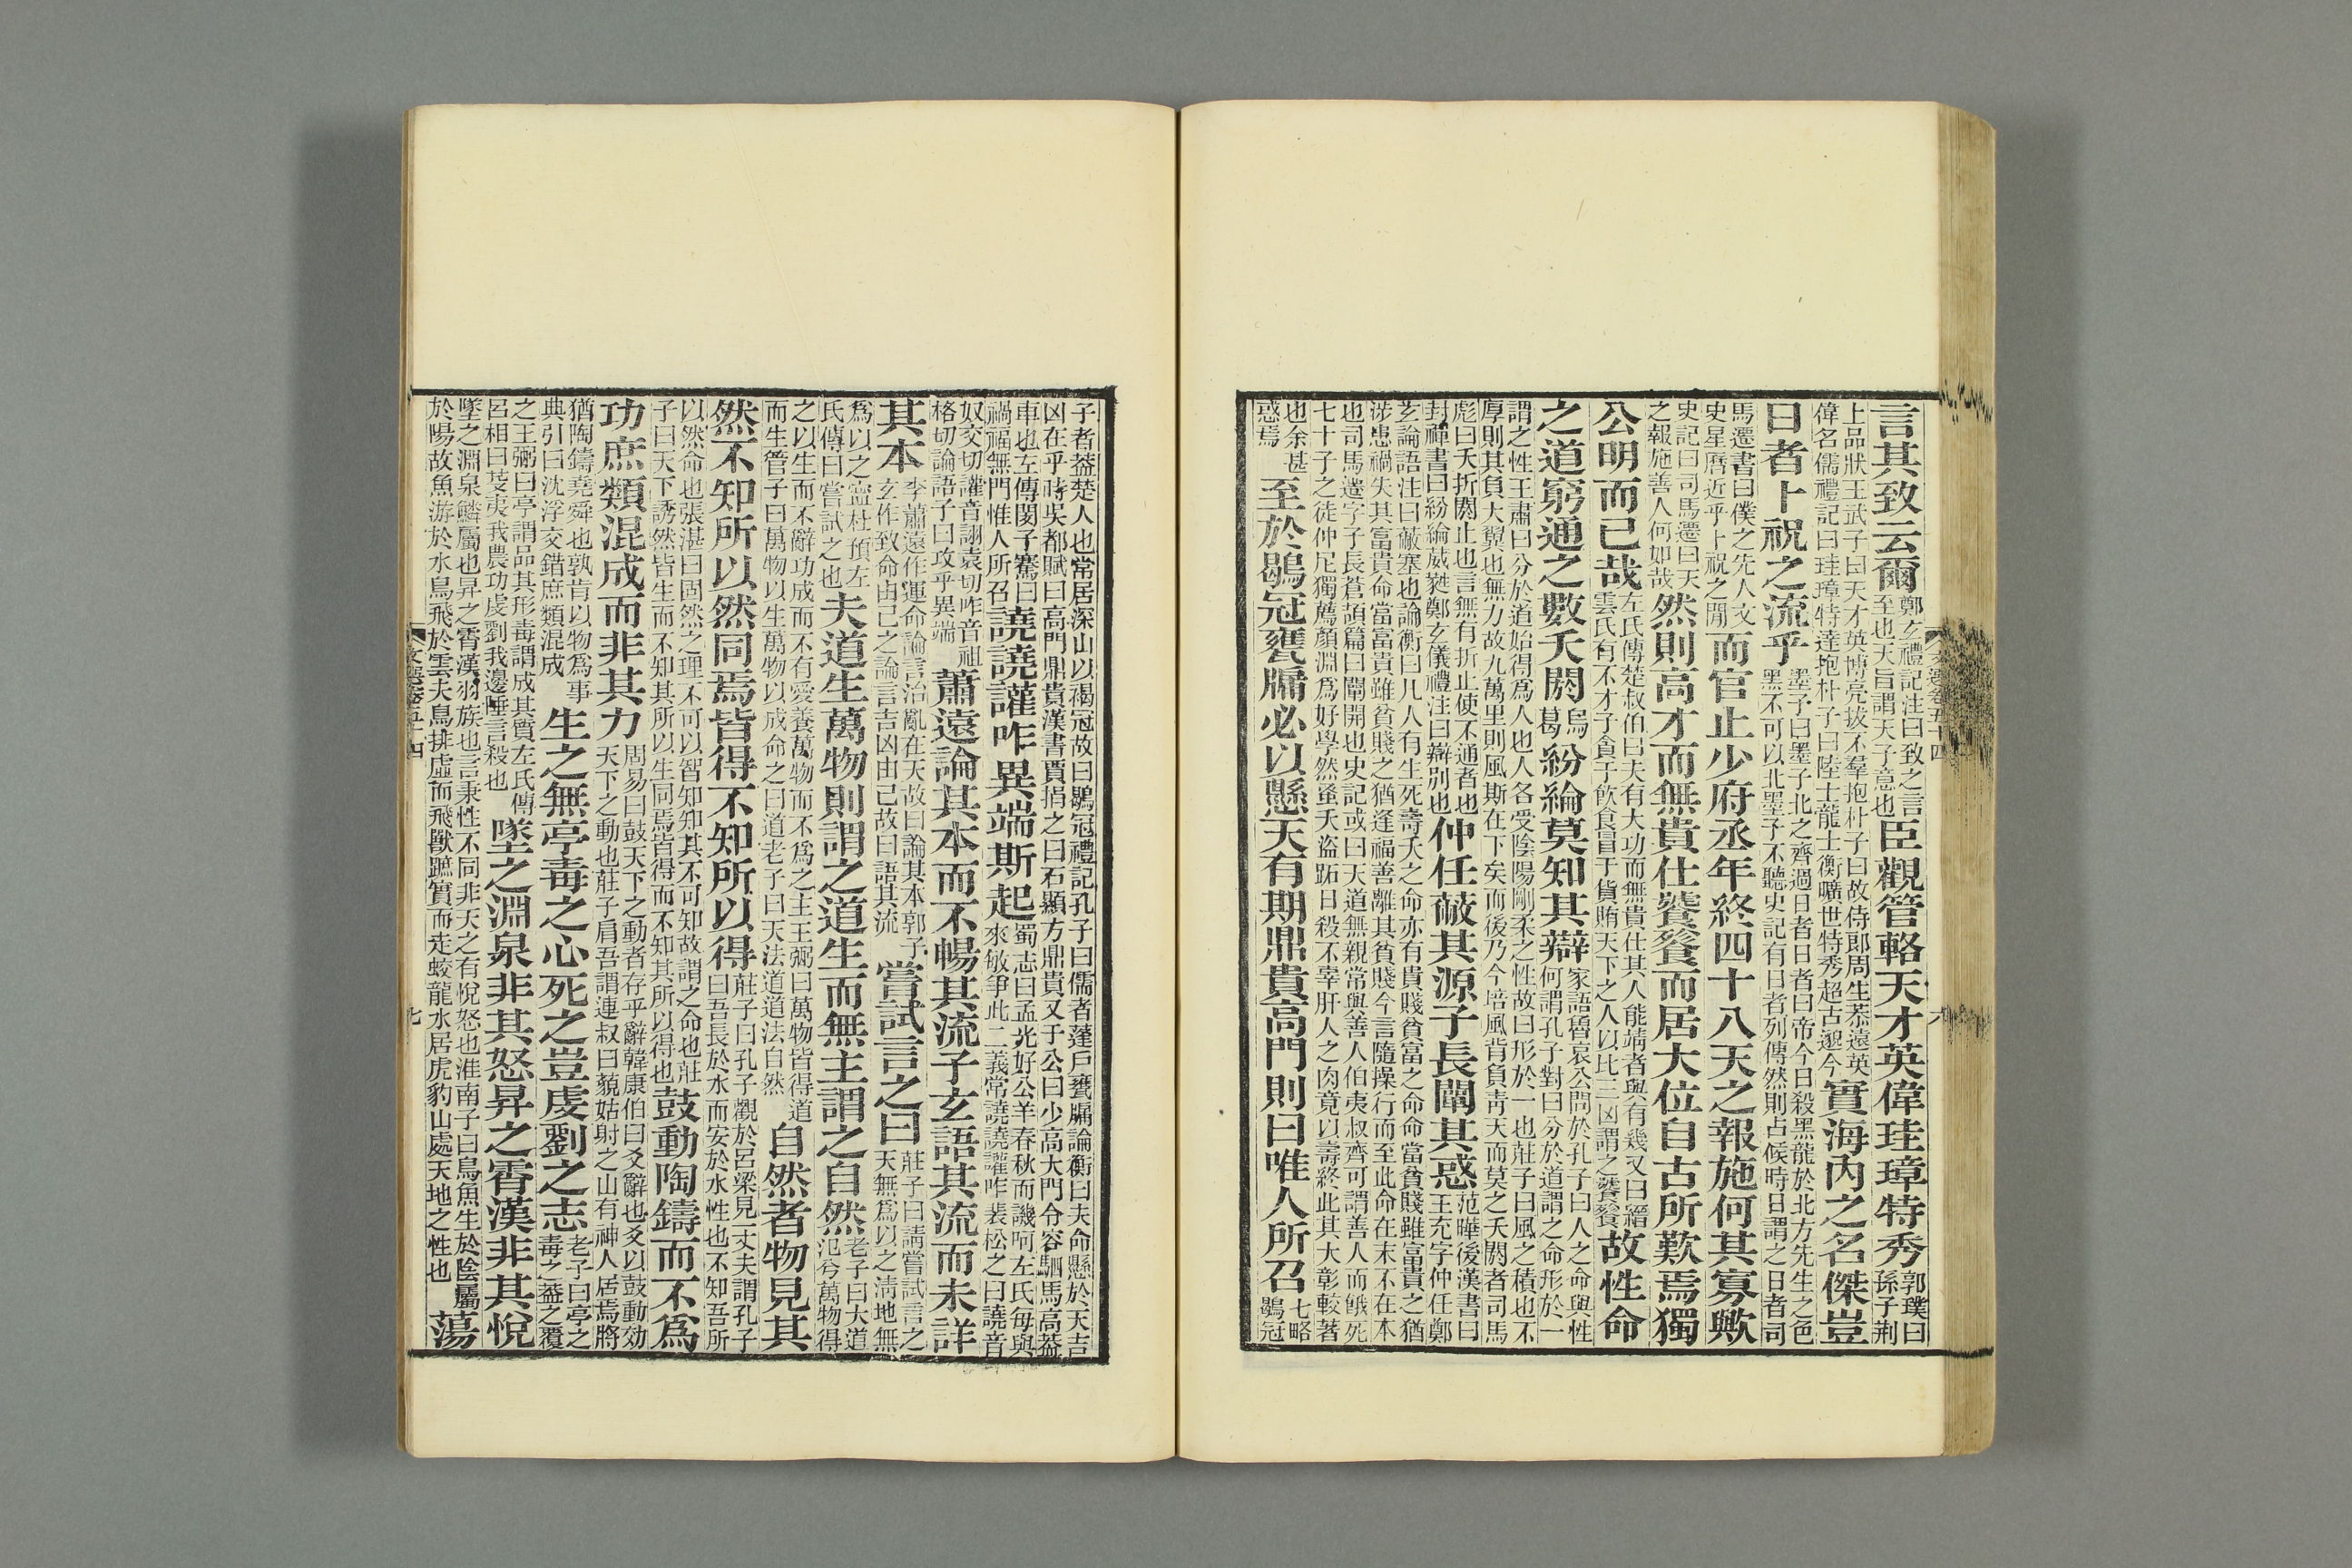 言其致云爾鄭玄禮記注曰致之言至也天旨謂天子意也臣觀管輅天才英偉珪璋特秀郭璞曰孫子荆
上品狀王武子曰天才英博亮拔不羣抱朴子曰故侍郎周生恭遠英偉名儒禮記曰珪璋特達抱朴子曰陸士龍士衡曠世特秀超古邈今實海內之名傑豈
日者卜祝之流乎墨子曰墨子北之齊過日者日者曰帝今日殺黑龍於北方先生之色黑不可以北墨子不聽史記有日者列傳然則占候時日謂之日者司
馬遷書曰僕之先人文史星曆近乎卜祝之閒而官止少府丞年終四十八天之報施何其寡歟
史記曰司馬遷曰天之報施善人何如哉然則高才而無貴仕饕餮而居大位自古所歎焉獨
公明而已哉左氏傳楚叔伯曰夫有大功而無貴仕其人能靖者與有幾又曰縉雲氏有不才子貪于飲食冒于貨賄天下之人以比三凶謂之饕餮故性命
之道窮通之數夭閼烏葛紛綸莫知其辯家語魯哀公問於孔子曰人之命與性何謂孔子對曰分於道謂之命形於一
謂之性王肅曰分於道始得爲人也人各受陰陽剛柔之性故曰形於一也莊子曰風之積也不厚則其負大翼也無力故九萬里則風斯在下矣而後乃今培風背負青天而莫之夭閼者司馬
彪曰夭折閼止也言無有折止使不通者也封禪書曰紛綸葳蕤鄭玄儀禮注曰辯別也仲任蔽其源子長闡其惑范曄後漢書曰王充字仲任鄭
玄論語注曰蔽塞也論衡曰凡人有生死壽夭之命亦有貴賤貧富之命命當貧賤雖富貴之猶涉患禍失其富貴命當富貴雖貧賤之猶逢福善離其貧賤今言隨操行而至此命在末不在本
也司馬遷字子長蒼頡篇曰闡開也史記或曰天道無親常與善人伯夷叔齊可謂善人而餓死七十子之徒仲尼獨薦顏淵爲好學然蚤夭盜跖日殺不辜肝人之肉竟以壽終此其大彰較著
也余甚惑焉至於鶡冠甕牖必以懸天有期鼎貴高門則曰唯人所召七略鶡冠
子者蓋楚人也常居深山以褐冠故曰鶡冠禮記孔子曰儒者蓬戶甕牖論衡曰夫命懸於天吉凶在乎時吳都賦曰高門鼎貴漢書賈捐之曰石顯方鼎貴又于公曰少高大門令容駟馬高蓋
車也左傳閔子騫曰禍福無門惟人所召譊譊讙咋異端斯起蜀志曰孟光好公羊春秋而譏呵左氏每與來敏爭此二義常譊譊讙咋裴松之曰譊音
奴交切讙音詡袁切咋音祖格切論語子曰攻乎異端蕭遠論其本而不暢其流子玄語其流而未詳
其本李蕭遠作運命論言治亂在天故曰論其本郭子玄作致命由己之論言吉凶由己故曰語其流嘗試言之曰莊子曰請嘗試言之天無爲以之淸地無
爲以之寧杜預左氏傳曰嘗試之也夫道生萬物則謂之道生而無主謂之自然老子曰大道氾兮萬物得
之以生而不辭功成而不有愛養萬物而不爲之主王弼曰萬物皆得道而生管子曰萬物以生萬物以成命之曰道老子曰天法道道法自然自然者物見其
然不知所以然同焉皆得不知所以得莊子曰孔子觀於呂梁見一丈夫謂孔子曰吾長於水而安於水性也不知吾所
以然而然命也張湛曰固然之理不可以智知知其不可知故謂之命也莊子曰天下誘然皆生而不知其所以生同焉皆得而不知其所以得也鼓動陶鑄而不爲
功庶類混成而非其力周易曰鼓天下之動者存乎辭韓康伯曰爻辭也爻以鼓動効天下之動也莊子肩吾謂連叔曰藐姑射之山有神人居焉將
猶陶鑄堯舜也孰肯以物爲事典引曰沈浮交錯庶類混成生之無亭毒之心死之豈虔劉之志老子曰亭之毒之蓋之覆
之王弼曰亭謂品其形毒謂成其質左氏傳呂相曰芟夷我農功虔劉我邊陲言殺也墜之淵泉非其怒昇之霄漢非其悅
墜之淵泉鱗屬也昇之霄漢羽族也言秉性不同非天之有悅怒也淮南子曰鳥魚生於陰屬於陽故魚游於水鳥飛於雲夫鳥排虛而飛獸蹠實而走蛟龍水居虎豹山處天地之性也蕩